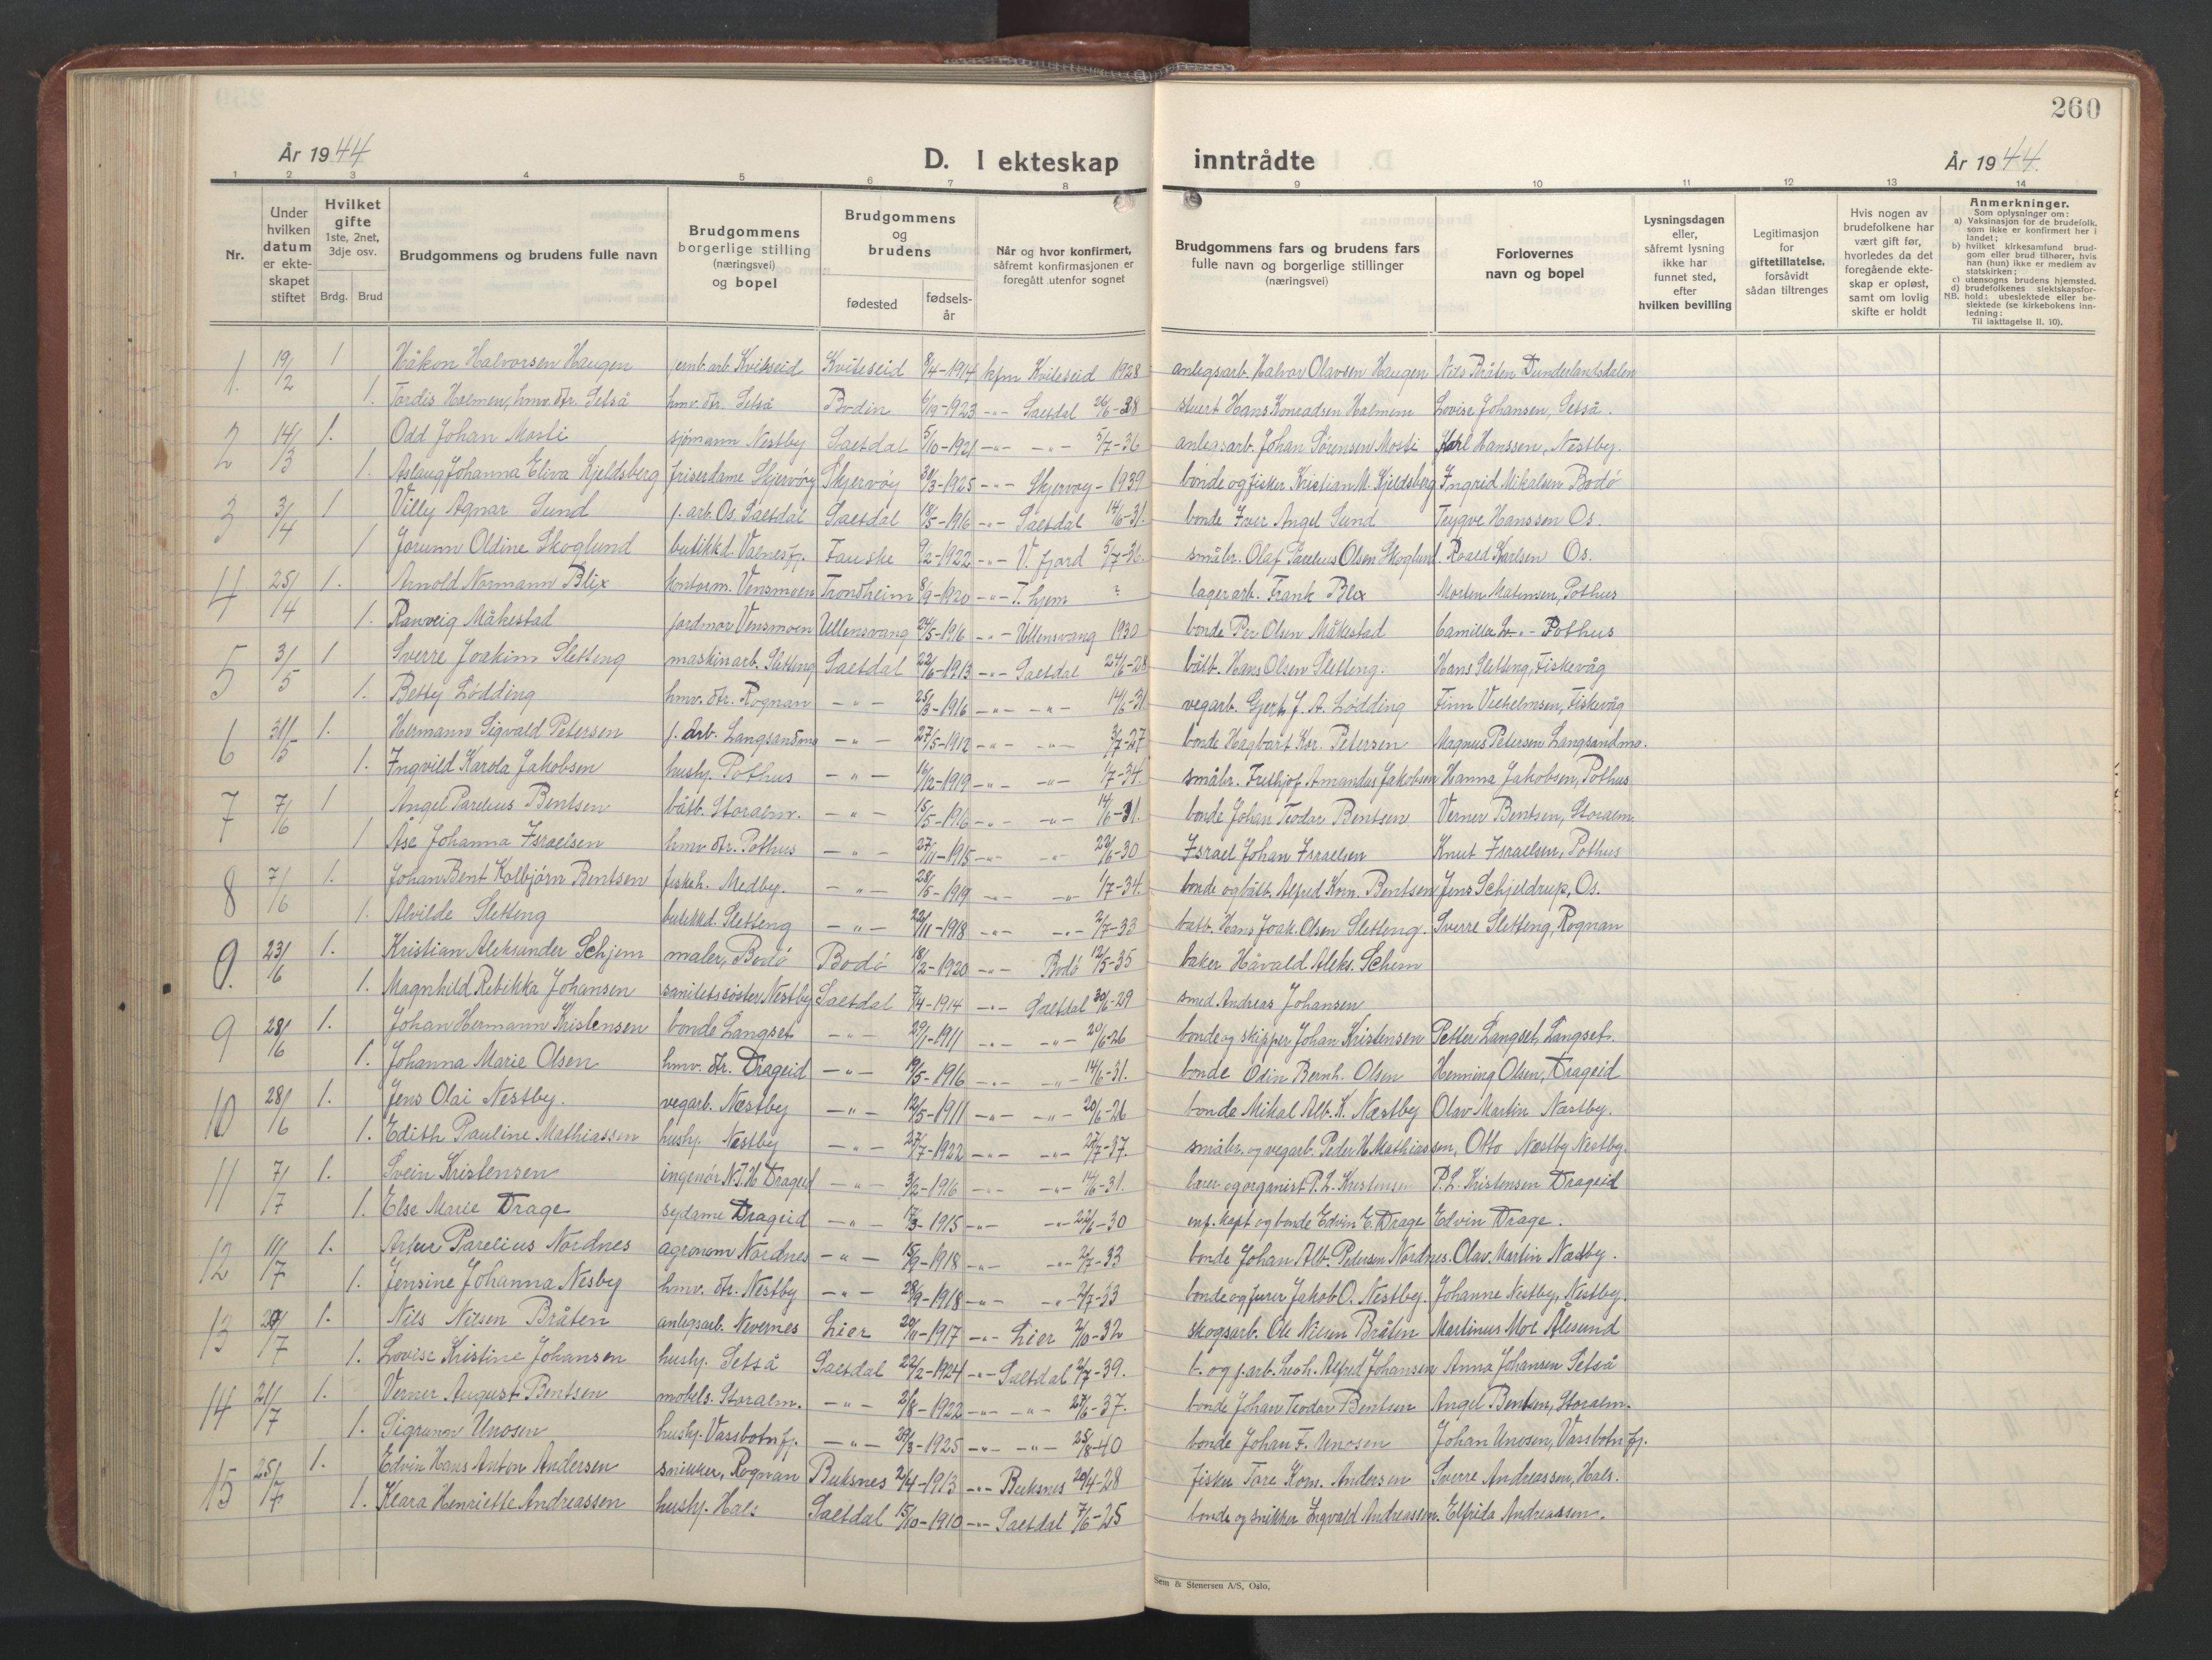 260
År 1944
D. I ekteskap inntrådte
År 1944.
1 2 3 4 5 6 7 8 9 10 11 12 13 14
Nr.
Under hvilken datum er ekteskapet stiftet
Hvilket gifte 1ste, 2net, 3dje osv.
Brdg. Brud
Brudgommens og brudens fulle navn
Brudgommens borgerlige stilling (næringsvei) og bopel
Brudgommens og brudens
fødested
fødselsår
Når og hvor konfirmert, såfremt konfirmasjonen er foregått utenfor sognet
Brudgommens fars og brudens fars fulle navn og borgerlige stillinger (næringsvei)
Forlovernes navn og bopel
Lysningsdagen eller, såfremt lysning ikke har funnet sted, efter hvilken bevilling
Legitimasjon for giftetillatelse, forsåvidt sådan tiltrenges
Hvis nogen av brudefolkene har vært gift før, hvorledes da det foregående ekteskap er opløst, samt om lovlig skifte er holdt
Anmerkninger.
Som oplysninger om:
a) Vaksinasjon for de brudefolk, som ikke er konfirmert her i landet;
b) hvilket kirkesamfund brudgom eller brud tilhører, hvis han (hun) ikke er medlem av statskirken;
c) utensogns brudens hjemsted.
d) brudefolkenes slektskapsforhold; ubeslektede eller beslektede (se kirkebokens innledning:
NB.
Til iakttagelse II. 10).
1. 19/2 1 Håkon Halvorsen Haugen jernb.arb. Kviteseid Kviteseid 8/4-1914 kfm Kviteseid 1928 anlegsarb. Halvor Olavsen Haugen Nils Bråten Dunderlandsdalen
1. Tordis Halmen, hmv. dtr. Setså hmv. dtr. Setså Bodin 6/9-1923 -"- Saltdal 26/6-38 stuert Hans Konradsen Halmem Lovise Johansen, Setså.
2 14/3 1. Odd Johan Mosti sjømann Nestby Saltdal 5/10-1921 -"- -"- 5/7-36 anlegsarb. Johan Sørensen Mosti Karl Hanssen, Nestby.
1. Aslaug Johanna Eliva Kjeldsberg friserdame Skjervøy Skjervøy 31/3-1925 -"- Skjervøy - 1939 bonde og fisker Kristian M. Kjeldsberg Ingrid Mikalsen Bodö
3 3/4 1 Villy Agnar Sund j.arb. Os. Saltdal Saltdal 18/5-1916 -"- Saltdal 14/6-31. bonde Iver Angel Sund Trygve Hanssen Os.
1 Jorunn Oldine Skoglund butikkd. Valnesfj. Fauske 9/2-1922 -"- V. fjord 5/7-36. småbr. Olaf Parelius Olsen Skoglund. Roald Karlsen Os.
4 25/4 1. Arnold Normann Blix kontorm. Vensmoen Trondheim 8/9-1920 -"- T. hjem ? lagerarb. Frank Blix Morten Matensen, Pothus
1. Ranveig Måkestad jordmor Vensmoen Ullensvang 24/5-1916 -"- Ullensvang 1930 bonde Per Olsen Måkestad Camilla -"- Pothus
5 3/5 1 Sverre Joakim Sletteng maskinarb. Sletteng Saltdal 22/6-1913 -"- Saltdal 24/6-28 båtb. Hans Olsen Sletteng. Hans Sletteng, Fiskevåg
1. Betty Lödding hmv. dtr. Rognan -"- 25/3-1916 -"- -"- 14/6-31 vegarb. Gjert J. A. Lödding Finn Vilhelmsen, Fiskevåg
6 31/5 1. Hermann Sigvald Petersen j. arb. Langsandmo -"- 27/5-1912 -"- -"- 3/7-27 bonde Hagbart Kor. Petersen Magnus Petersen Langsandmo.
1. Ingvild Karola Jakobsen hushj. Pothus -"- 16/12-1919 -"- -"- 1/7-34. småbr. Frithjof Amandus Jakobsen Hanna Jakobsen, Pothus
7 7/6 1 Angel Parelius Bentsen båtb. Storalm. -"- 15/5-1916 -"- -"- 14/6-31. bonde Johan Teodor Bentsen. Verner Bentsen, Storalm.
1 Åse Johanna Israelsen hmv. dtr. Pothus -"- 27/11-1915 -"- -"- 22/6-30 Israel Johan Israelsen Knut Israelsen, Pothus
8 7/6 1. Johan Bent Kolbjörn Bentsen fiskeh. Medby. -"- 28/5-1919 -"- -"- 1/7-34. bonde og båtb. Alfred Korn. Bentsen Jens Schjeldrup, Os.
1. Alvilde Sletteng butikkd. Sletteng -"- 23/11-1918 -"- -"- 2/7-33 båtb. Hans Joak. Olsen Sletteng. Sverre Sletteng, Rognan
9. 23/6 1. Kristian Aleksander Schjem maler, Bodö Bodö 18/2-1920 -"- Bodö 12/5-35 baker Håvald Aleks. Schem
1. Magnhild Rebekka Johansen sanitetssöster Nestby Saltdal 7/4-1914 -"- Saltdal 30/6-29 smed Andreas Johansen
9 28/6 1. Johan Hermann Kristensen bonde Langset -"- 29/1-1911 -"- -"- 20/6-26 bonde og skipper Johan Kristensen Petter Langset, Langset.
1. Johanna Marie Olsen hmv. dtr. Drageid -"- 19/5-1916 -"- -"- 14/6-31. bonde Odin Bernh. Olsen Henning Olsen, Drageid
10 28/6 1. Jens Olai Nestby. vegarb. Næstby -"- 12/5-1911 -"- -"- 20/6-26 bonde Mikal Alb. K. Næstby Olav Martin Næstby.
1. Edith Pauline Mathiassen hushj. Næstby -"- 27/7-1922 -"- -"- 27/7-37. småbr. og vegarb. Peder H. Mathiassen, Otto Næstby Nestby.
11 7/7 1. Svein Kristensen ingeniör N.T.H Drageid -"- 3/2-1916 -"- -"- 14/6-31. lærer og organist P. L. Kristensen P. L. Kristensen Drageid
1. Else Marie Drage sydame Drageid -"- 17/3-1915 -"- -"- 22/6-30 inf. kapt og bonde Edvin E. Drage Edvin Drage.
12 11/7 1. Artur Parelius Nordnes agronom Nordnes -"- 15/9-1918 -"- -"- 2/7-33 bonde Johan Alb. Pedersen Nordnes. Olav Martin Næstby.
1. Jensine Johanna Nesby hmv. dtr. Nestby -"- 28/9-1918 -"- -"- 2/7-33 bonde og furer Jakob O. Nestby. Johanne Nestby, Nestby.
13 /7 1. Nils Nilsen Bråten anlegsarb. Nevernes Lier 20/11-1917 -"- Lier 2/10-32 skogsarb. Ole Nilsen Bråten Martinus Mol Ålesund
1. Lovise Kristine Johansen hushj. Setså Saltdal 22/2-1924 -"- Saltdal 2/7-39. b. og j.arb. Leoh. Alfred Johansen Anna Johansen Setså
14 21/7 1. Verner August Bentsen mobels. Storalm. -"- 2/8-1922 -"- -"- 27/6-37. bonde Johan Teodor Bentsen Angel Bentsen, Storalm.
1. Sigrunn Unosen hushj. Vassbotnfj. -"- 29/3-1925 -"- -"- 25/8-40 bonde Johan F. Unosen Johan Unosen, Vassbotnfj.
15 25/7 1. Edvin Hans Anton Andersen snikker, Rognan Buksnes 2/4-1913 -"- Buksnes 20/4-28 fisker Tore Korn. Andersen Sverre Andreassen, Hals.
1. Klara Henriette Andreassen hushj. Hals Saltdal 15/10-1910 -"- Saltdal 7/6-25 bonde og snikker Ingvald Andreassen. Elfrida Andreassen.
Sem & Stenersen A/S, Oslo,